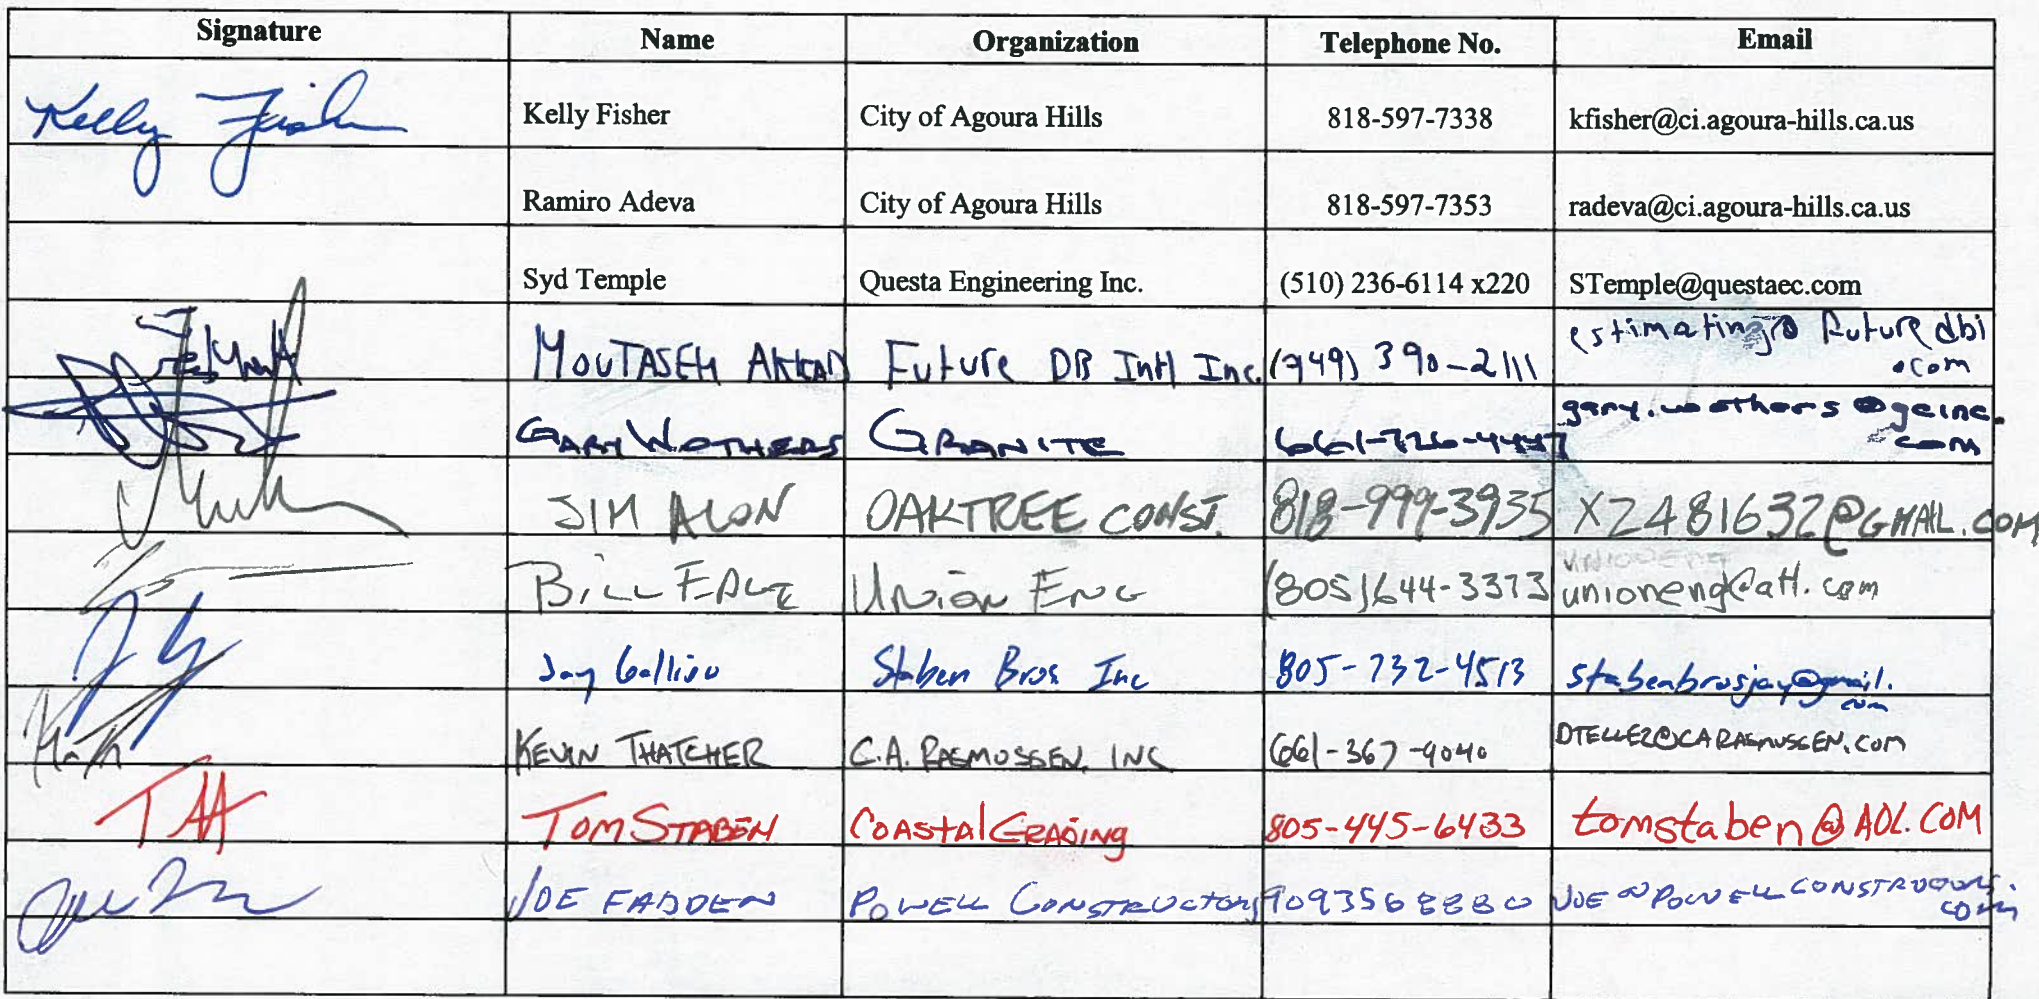 Signature Name Organization Telephone No. Email
Kelly Fisher Kelly Fisher City of Agoura Hills 818-597-7338 kfisher@ci.agoura-hills.ca.us
Ramiro Adeva City of Agoura Hills 818-597-7353 radeva@ci.agoura-hills.ca.us
Syd Temple Questa Engineering Inc. (510) 236-6114 x220 STemple@questaec.com
MOUTASEM AKKAD Future DB Intl Inc. (949) 390-2111 estimating@futuredbi
.com
GARY WOTHERS GRANITE 661-726-4447 gary.wothers@gcinc.
com
JIM ALON OAKTREE CONST. 818-999-3935 X2481632@GMAIL.COM
BILL Union ENG (805)644-3373 unioneng@att.com
Jay Staben Bros Inc 805-732-4513 stabenbrosjay@gmail.
com
KEVIN THATCHER C.A. RASMUSSEN, INC 661-367-9040 DTELLEZ@CARASMUSSEN.COM
TOM STABEN COASTAl GRADING 805-445-6433 tomstaben@AOL.COM
JOE FADDEN POWELL CONSTRUCTORS 9093568880 JOE@POWELLCONSTRUCTORS.
COM